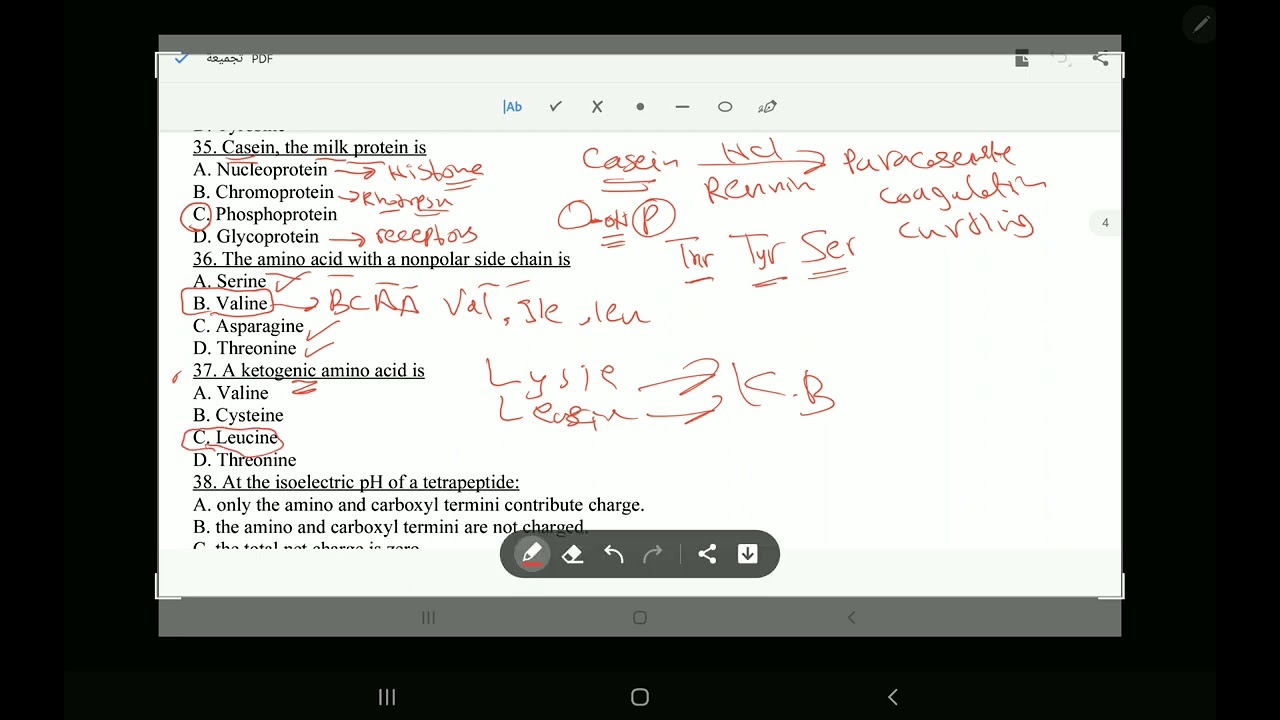 تجميعة PDF
|Ab
35. Casein, the milk protein is
A. Nucleoprotein → Histone
B. Chromoprotein → Rhodopsin
C. Phosphoprotein
D. Glycoprotein → receptors
Casein HCl
Rennin
coagulation
curdling
OH P
Thr Tyr Ser
36. The amino acid with a nonpolar side chain is
A. Serine
B. Valine → BCAA Val, Ile, leu
C. Asparagine
D. Threonine
37. A ketogenic amino acid is
A. Valine
B. Cysteine
C. Leucine
D. Threonine
K.B
38. At the isoelectric pH of a tetrapeptide:
A. only the amino and carboxyl termini contribute charge.
B. the amino and carboxyl termini are not charged.
C. the total net charge is zero
4